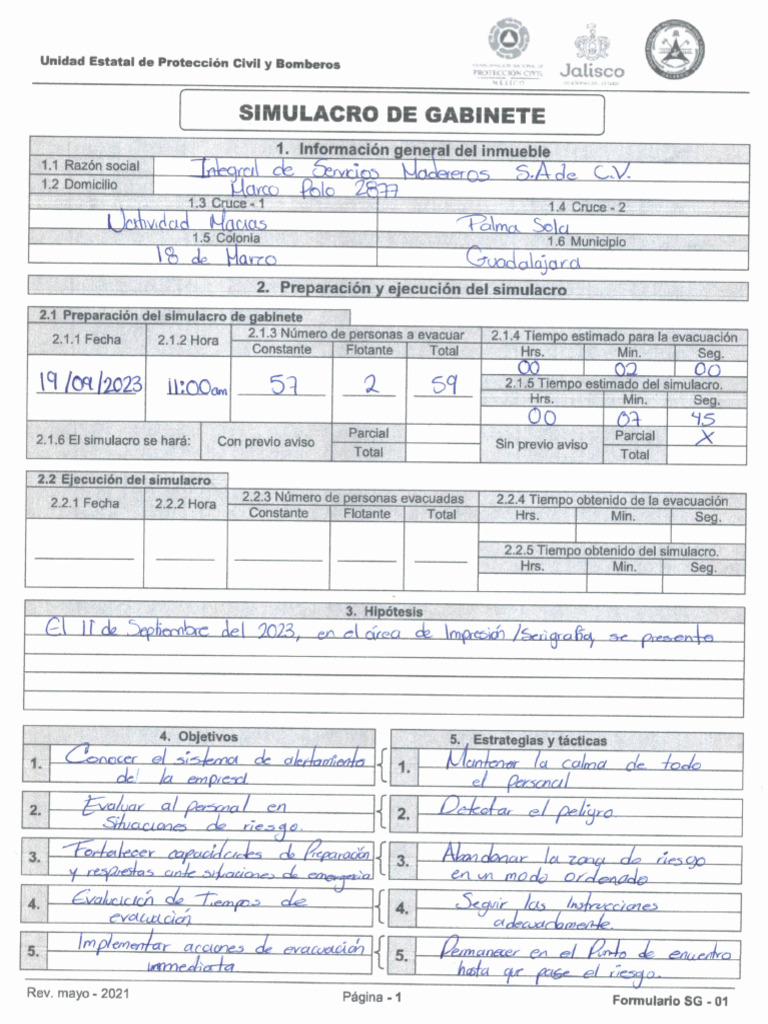 Unidad Estatal de Protección Civil y Bomberos
PROTECCIÓN CIVIL
MÉXICO
Jalisco
SIMULACRO DE GABINETE
1. Información general del inmueble
1.1 Razón social Integral de Servicios Madereros S.A de C.V.
1.2 Domicilio Marco Polo 2877
1.3 Cruce - 1 1.4 Cruce - 2
Natividad Macias Palma Sola
1.5 Colonia 1.6 Municipio
18 de Marzo Guadalajara
2. Preparación y ejecución del simulacro
2.1 Preparación del simulacro de gabinete
2.1.1 Fecha 2.1.2 Hora 2.1.3 Número de personas a evacuar 2.1.4 Tiempo estimado para la evacuación
Constante Flotante Total Hrs. Min. Seg.
00 02 00
19/09/2023 11:00am 57 2 59 2.1.5 Tiempo estimado del simulacro.
Hrs. Min. Seg.
00 07 45
2.1.6 El simulacro se hará: Con previo aviso Parcial Sin previo aviso Parcial X
Total Total
2.2 Ejecución del simulacro
2.2.1 Fecha 2.2.2 Hora 2.2.3 Número de personas evacuadas 2.2.4 Tiempo obtenido de la evacuación
Constante Flotante Total Hrs. Min. Seg.
2.2.5 Tiempo obtenido del simulacro.
Hrs. Min. Seg.
3. Hipótesis
El 11 de Septiembre del 2023, en el área de Impresión/Serigrafía, se presento
4. Objetivos
1. Conocer el sistema de alertamiento
de la empresa
2. Evaluar al personal en
Situaciones de riesgo.
3. Fortalecer capacidades de Preparación
y respuestas ante situaciones de emergencia
4. Evaluación de Tiempos de
evacuación
5. Implementar acciones de evacuación
immediata
5. Estrategias y tácticas
1. Mantener la calma de todo
el personal
2. Detectar el peligro.
3. Abandonar la zona de riesgo
en un modo ordenado
4. Seguir las Instrucciones
adecuadamente.
5. Permanecer en el Punto de encuentro
hasta que pase el riesgo.
Rev. mayo - 2021 Página - 1 Formulario SG - 01